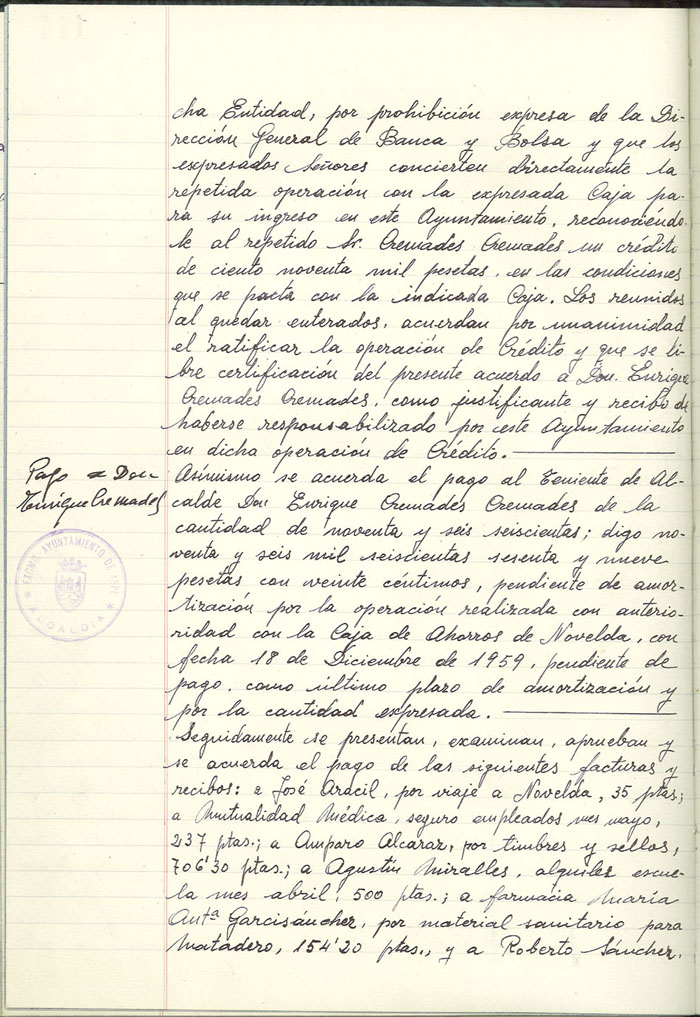 cha Entidad, por prohibición expresa de la Di-
rección General de Banca y Bolsa y que los
expresados Señores concierten directamente la
repetida operación con la expresada Caja pa-
ra su ingreso en este Ayuntamiento, reconociéndo-
le al repetido Sr. Cremades Cremades un crédito
de ciento noventa mil pesetas, en las condiciones
que se pacta con la indicada Caja. Los reunidos
al quedar enterados, acuerdan por unanimidad
el ratificar la operación de Crédito y que se li-
bre certificación del presente acuerdo a Don Enrique
Cremades Cremades, como justificante y recibo de
haberse responsabilizado por este Ayuntamiento
en dicha operación de Crédito.
Pago a Don
Enrique Cremades
Asimismo se acuerda el pago al Teniente de Al-
calde Don Enrique Cremades Cremades de la
cantidad de noventa y seis seiscientas; digo no-
venta y seis mil seiscientas sesenta y nueve
pesetas con veinte céntimos, pendiente de amor-
tización por la operación realizada con anterio-
ridad con la Caja de Ahorros de Novelda, con
fecha 18 de Diciembre de 1959, pendiente de
pago, como último plazo de amortización y
por la cantidad expresada.
EXCMO. AYUNTAMIENTO DE ASPE
ALCALDIA
Seguidamente se presentan, examinan, aprueban y
se acuerda el pago de las siguientes facturas y
recibos: a José Aracil, por viaje a Novelda, 35 ptas;
a Mutualidad Médica, seguro empleados mes mayo,
237 ptas.; a Amparo Alcaraz, por timbres y sellos,
706'30 ptas.; a Agustín Miralles, alquiler escue-
la mes abril, 500 ptas.; a farmacia María
Antª Garcisánchez, por material sanitario para
Matadero, 154'20 ptas., y a Roberto Sánchez,